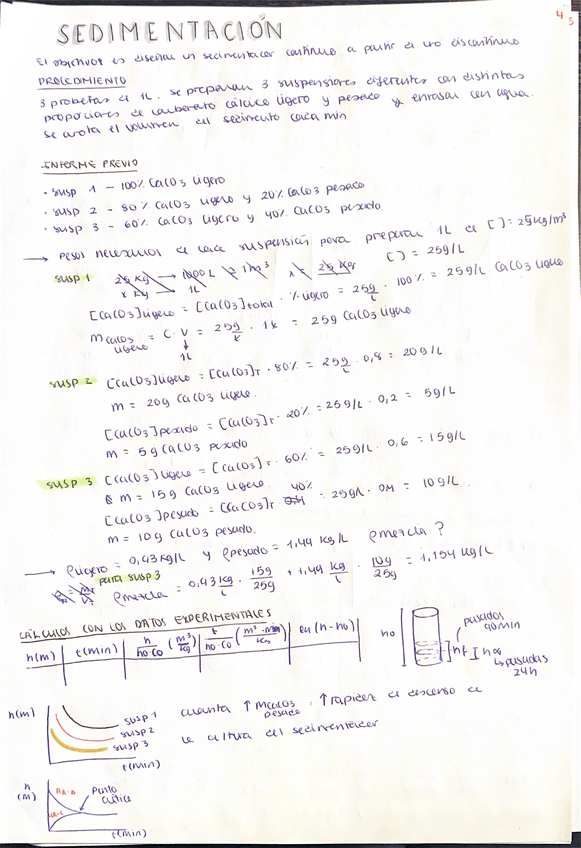 4 5
SEDIMENTACIÓN
El objetivo es diseñar un sedimentador continuo a partir de uno discontinuo
PROCEDIMIENTO
3 probetas de 1L. se preparan 3 suspensiones diferentes con distintas
proporciones de carbonato cálcico ligero y pesado y enrasar con agua.
Se anota el volumen del sedimento cada min
INFORME PREVIO
· SUSP 1 - 100% CaCO3 ligero
· SUSP 2 - 80% CaCO3 ligero y 20% CaCO3 pesado
· SUSP 3 - 60% CaCO3 ligero y 40% CaCO3 pesado
→ pesos necesarios de cada suspensión para preparar 1L de [ ] = 25kg/m³
[ ] = 25g/L
SUSP 1
25 kg → 1000 L = 1m³
x kg → 1L
[CaCO3]ligero = [CaCO3]total · % ligero = 25g/L · 100% = 25g/L CaCO3 ligero
m CaCO3 ligero = C · V = 25g/L · 1L = 25g CaCO3 ligero
↓
1L
SUSP 2 [CaCO3]ligero = [CaCO3]T · 80% = 25g/L · 0,8 = 20g/L
m = 20g CaCO3 ligero.
[CaCO3]pesado = [CaCO3]T · 20% = 25g/L · 0,2 = 5g/L
m = 5g CaCO3 pesado
SUSP 3 [CaCO3]ligero = [CaCO3]T · 60% = 25g/L · 0,6 = 15g/L
m = 15g CaCO3 ligero
[CaCO3]pesado = [CaCO3]T 40% = 25g/L · 0,4 = 10g/L
m = 10g CaCO3 pesado.
→ ρligero = 0,43 kg/L y ρpesado = 1,44 kg/L ρmezcla?
para susp 3
ρmezcla = 0,43 kg/L · 15g/25g + 1,44 kg/L · 10g/25g = 1,154 kg/L
CÁLCULOS CON LOS DATOS EXPERIMENTALES
h(m) | t(min) | h/h0·C0 (m³/kg) | t/h0·C0 (m²·min/kg) | ln(h-h∞)
h0
pasados 90min
hf
h∞
↳ pasadas 24h
h(m)
SUSP 1
SUSP 2
SUSP 3
t(min)
cuanta ↑ mCaCO3 pesado, ↑ rapidez de descenso de
la altura del sedimentador
h (m)
Punto crítico
t(min)